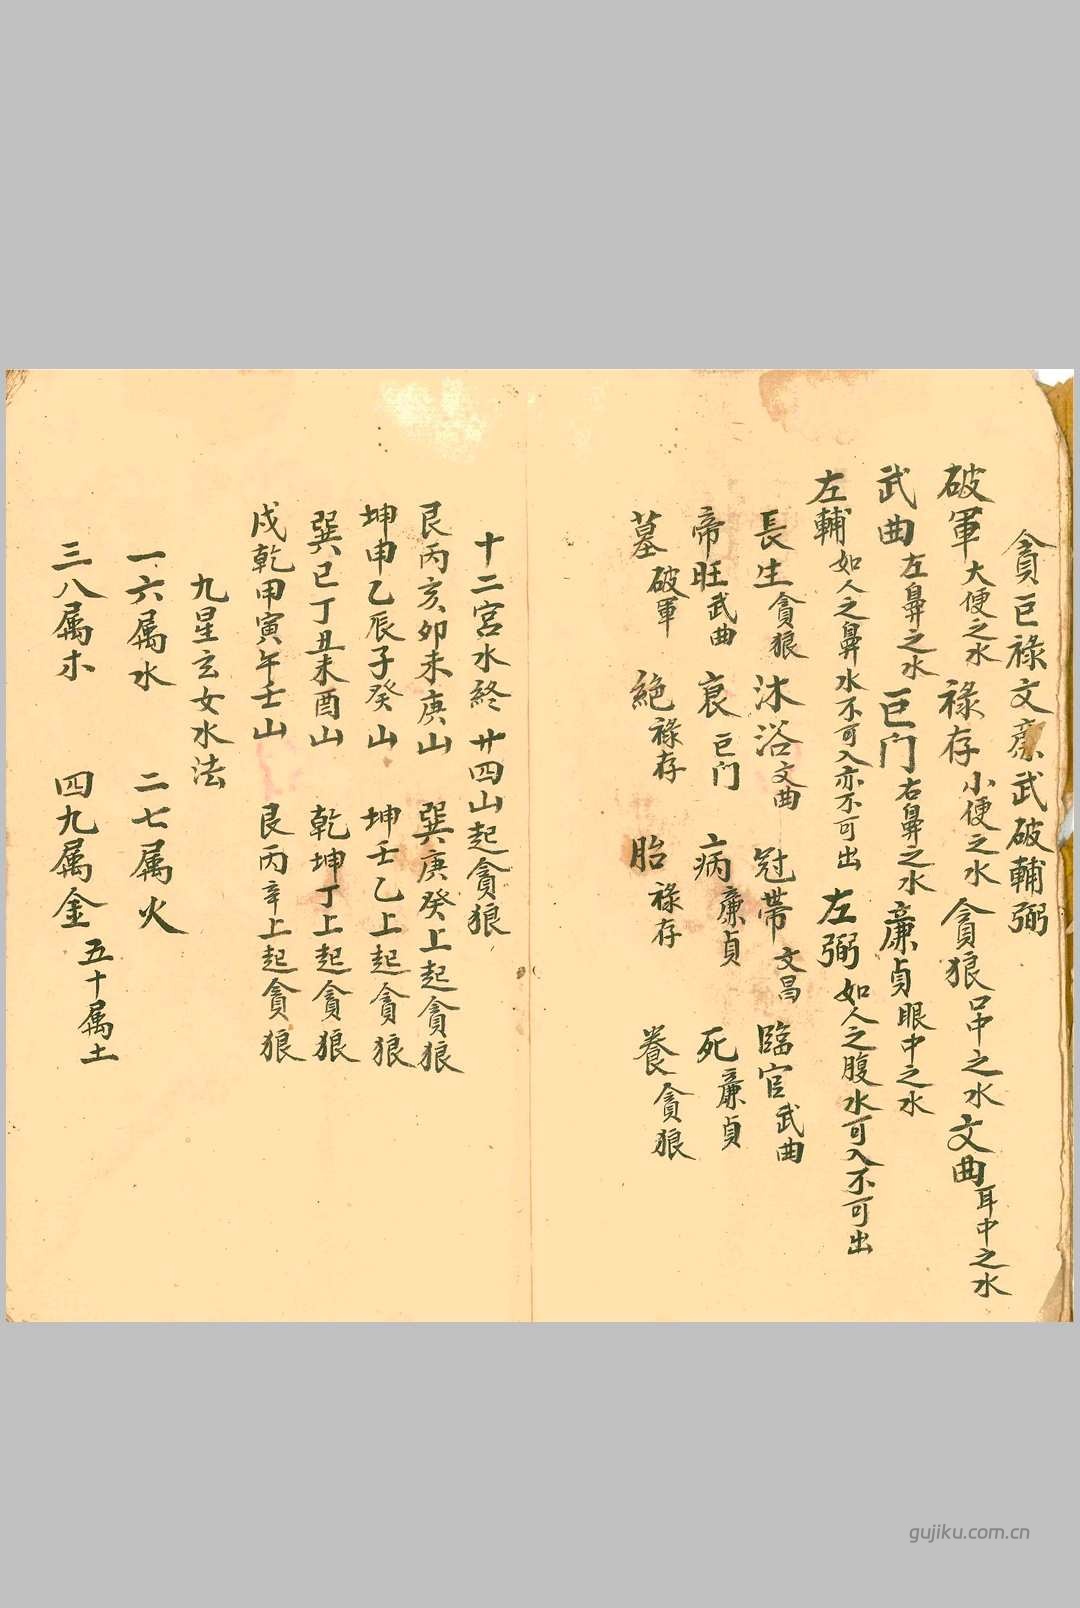 貪巨祿文廉武破輔弼
破軍大便之水 祿存小便之水 貪狼口中之水 文曲耳中之水
武曲左鼻之水 巨门右鼻之水 廉貞眼中之水
左輔如人之鼻水不可入亦不可出 左弼如人之腹水可入不可出
長生貪狼 沐浴文曲 冠帶文昌 臨官武曲
帝旺武曲 衰巨门 病廉貞 死廉貞
墓破軍 絕祿存 胎祿存 養貪狼
十二宮水終廿四山起貪狼
艮丙亥卯未庚山 巽庚癸上起貪狼
坤申乙辰子癸山 坤壬乙上起貪狼
巽巳丁丑未酉山 乾坤丁上起貪狼
戌乾甲寅午壬山 艮丙辛上起貪狼
九星玄女水法
一六属水 二七属火
三八属木 四九属金 五十属土
gujiku.com.cn